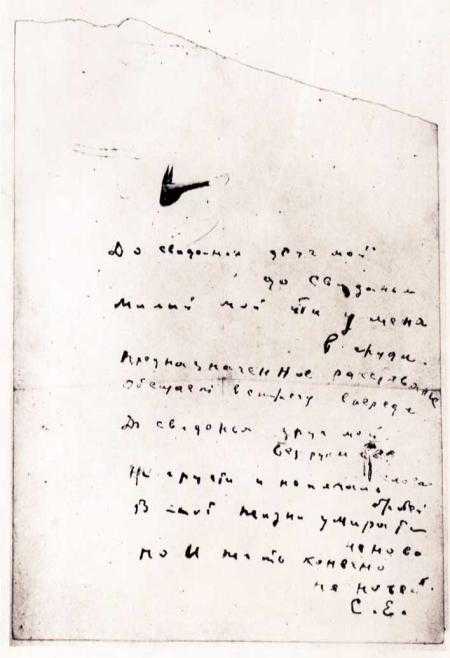 До свиданья друг мой
до свиданья
Милый мой ты у меня
в груди.
Предназначенное расставанье
Обещает встречу впереди
До свиданья друг мой
без руки
слова
Не грусти и не печаль
бровей
В этой жизни умирать
не ново
но и жить конечно
не новей.
С.Е.